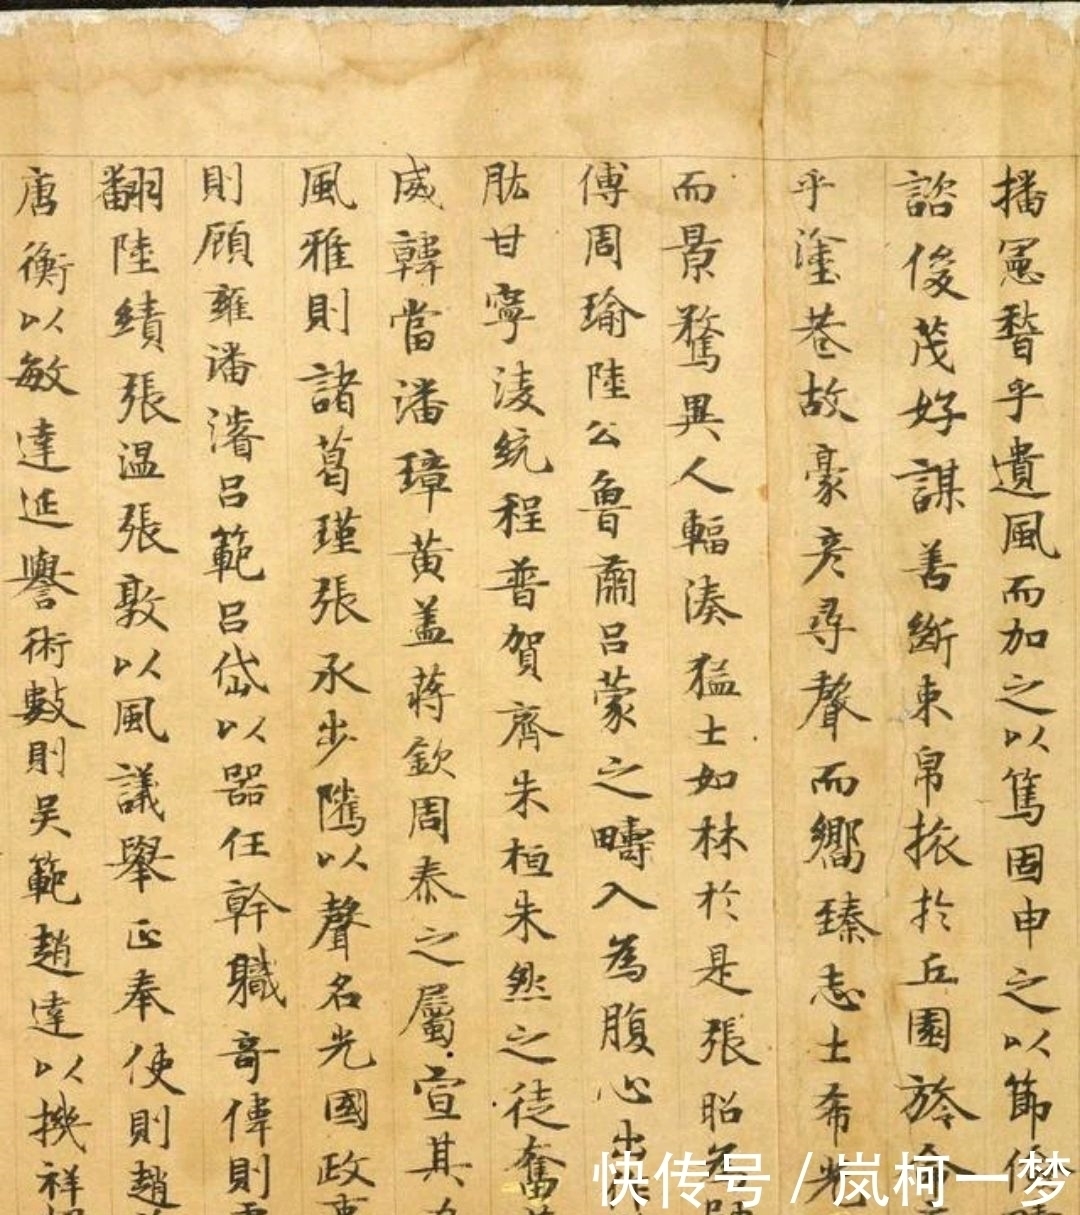 播憲稽乎遺風而加之以篤固申之以節
諮俊茂好謀善斷束帛旅扵丘園旍命
乎塗巷故豪彥尋聲而嚮臻志士希光
而景騖異人輻湊猛士如林扵是張昭為
傅周瑜陸公魯肅呂蒙之疇入為腹心出
肱甘寧淩統程普賀齊朱桓朱然之徒奮
威韓當潘璋黃蓋蔣欽周泰之屬宣其
風雅則諸葛瑾張承步隲以聲名光國政
則顧雍潘濬呂範呂岱以器任幹職奇偉則
翻陸績張溫張敦以風議舉正奉使則趙
唐衡以敏達延譽術數則吳範趙達以機祥
快传号 / 岚柯一梦